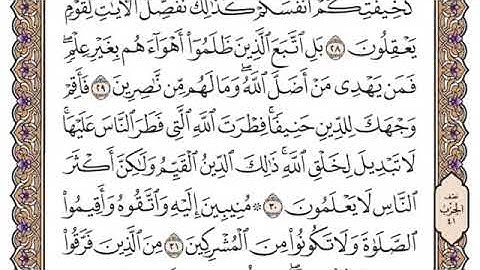 كَخِيفَتِكُمْ أَنفُسَكُمْ كَذَٰلِكَ نُفَصِّلُ الْآيَاتِ لِقَوْمٍ
يَعْقِلُونَ ٢٨ بَلِ اتَّبَعَ الَّذِينَ ظَلَمُوا أَهْوَاءَهُم بِغَيْرِ عِلْمٍ
فَمَن يَهْدِي مَنْ أَضَلَّ اللَّهُ وَمَا لَهُم مِّن نَّاصِرِينَ ٢٩ فَأَقِمْ
وَجْهَكَ لِلدِّينِ حَنِيفًا فِطْرَتَ اللَّهِ الَّتِي فَطَرَ النَّاسَ عَلَيْهَا
لَا تَبْدِيلَ لِخَلْقِ اللَّهِ ذَٰلِكَ الدِّينُ الْقَيِّمُ وَلَٰكِنَّ أَكْثَرَ
النَّاسِ لَا يَعْلَمُونَ ٣٠ ۞ مُنِيبِينَ إِلَيْهِ وَاتَّقُوهُ وَأَقِيمُوا
الصَّلَوٰةَ وَلَا تَكُونُوا مِنَ الْمُشْرِكِينَ ٣١ مِنَ الَّذِينَ فَرَّقُوا
نصف
الحزب
٤١